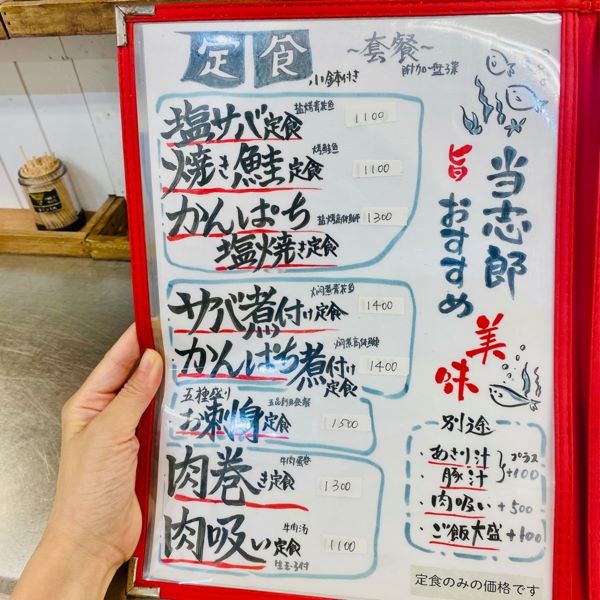 定食
小鉢付き
~套餐~
附加一盤子菜
塩サバ定食
塩烤青花魚
1100
焼き鮭定食
烤鮭魚
1100
かんぱち
塩焼き定食
1300
サバ煮付け定食
焖煮青花魚
1400
かんぱち煮付け
定食
1400
五種盛り
お刺身定食
1500
肉巻き定食
牛肉蛋卷
1300
肉吸い定食
牛肉湯
1100
当志郎
おすすめ
旨
美味
別途
・あさり汁
・豚汁
プラス
+100
・肉吸い +500
・ご飯大盛 +100
定食のみの価格です